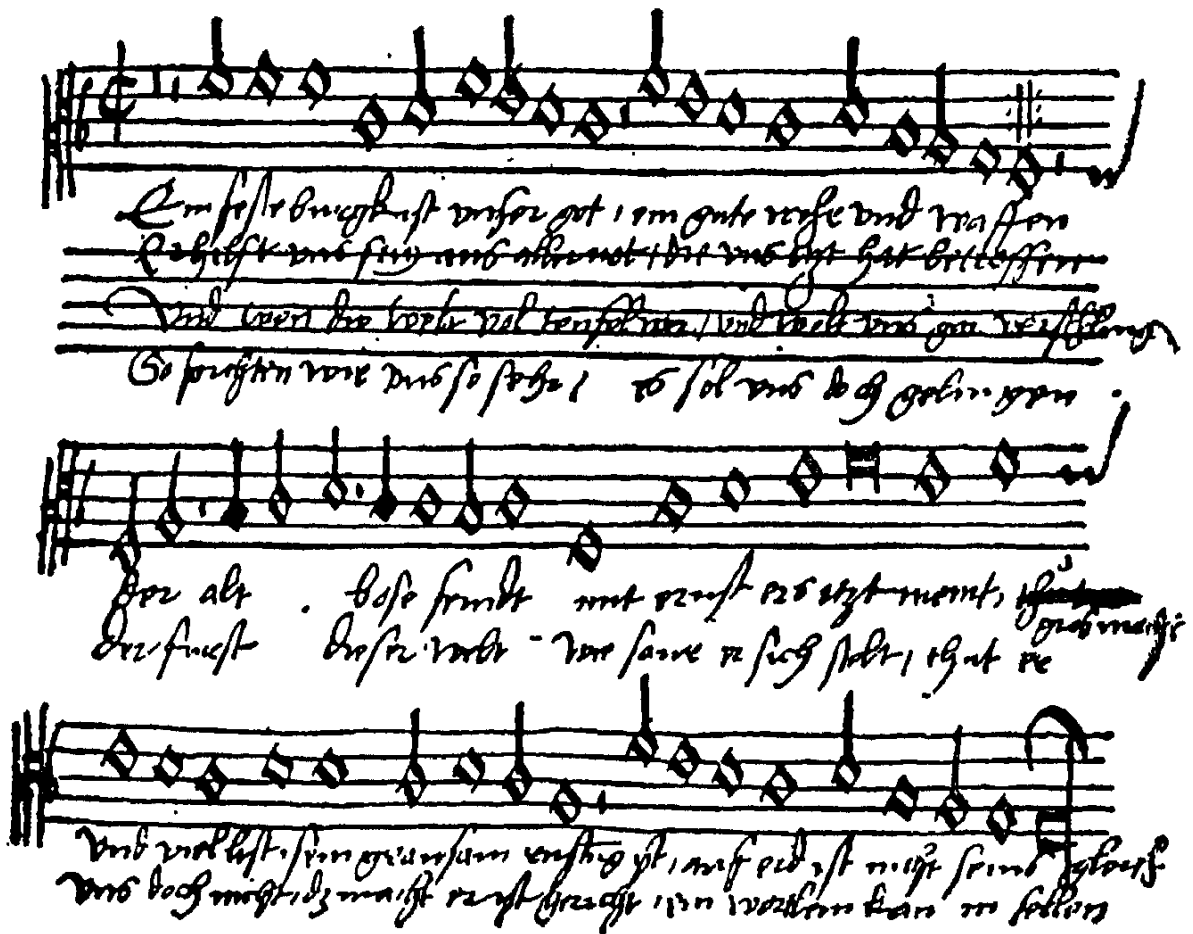 Ein feste burgk ist unser got, ein gute wehr und waffen
Er hilft uns frey aus aller not, die uns ytzt hat betroffen
Und wen die welt vol teufel wer, und wolt uns gar verschling
So furchten wir uns so sehr, es sol uns doch gelingen.
Der alt bose feindt mit ernst ers itzt meint, gros macht
der furst dieser welt wie saur er sich stelt, thut er
und viel list, sein grausam rustung yst, auf erd ist nicht seins gleich
uns doch nicht, dz macht er yst gericht, ein wortlein kan in fellen